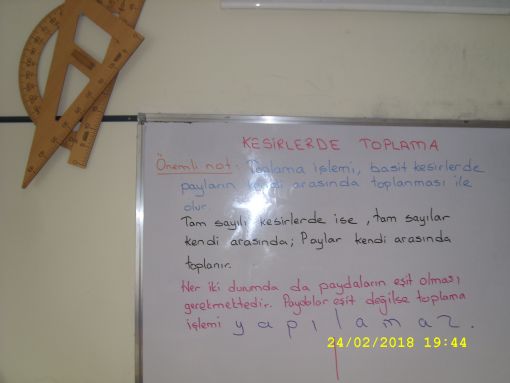 KESİRLERDE TOPLAMA
Önemli not: Toplama işlemi, basit kesirlerde
payların kendi arasında toplanması ile
olur.
Tam sayılı kesirlerde ise, tam sayılar
kendi arasında; Paylar kendi arasında
toplanır.
Her iki durumda da paydaların eşit olması
gerekmektedir. Paydalar eşit değilse toplama
işlemi yapılamaz.
24/02/2018 19:44